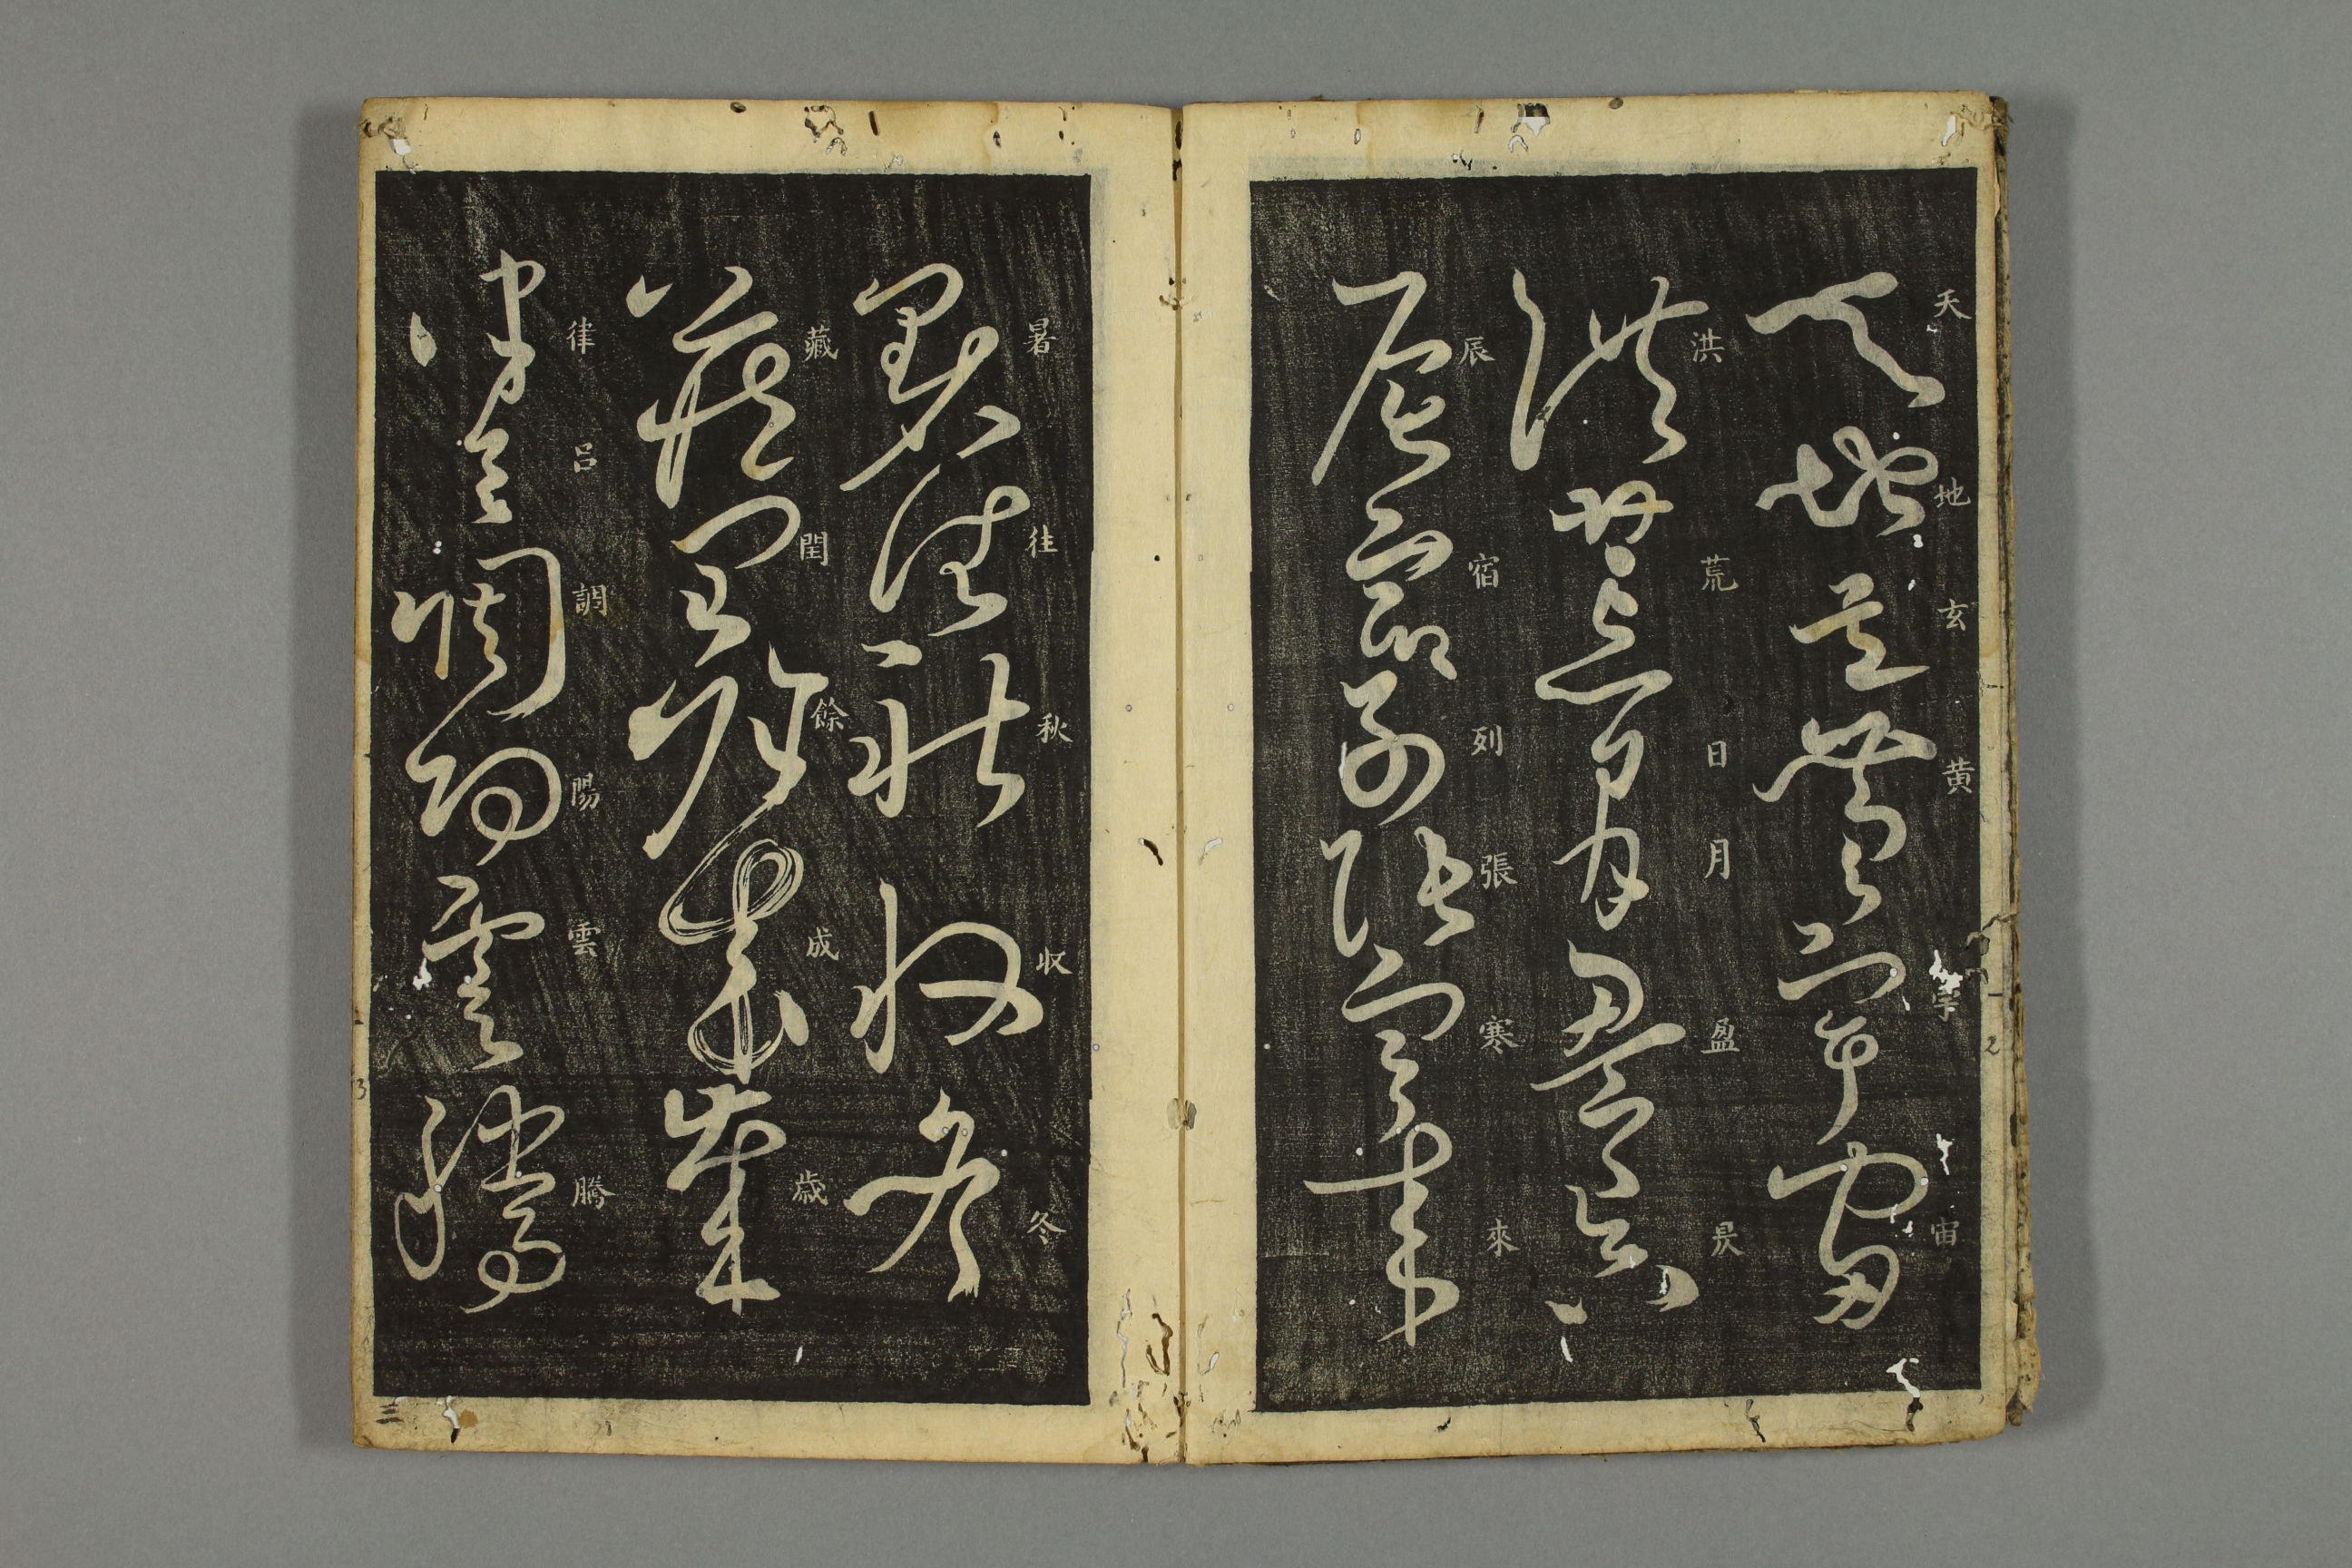 天地玄黄宇宙
洪荒日月盈昃
辰宿列張寒來
暑往秋収冬
藏閏餘成歳
律呂調陽雲騰
2
3
三